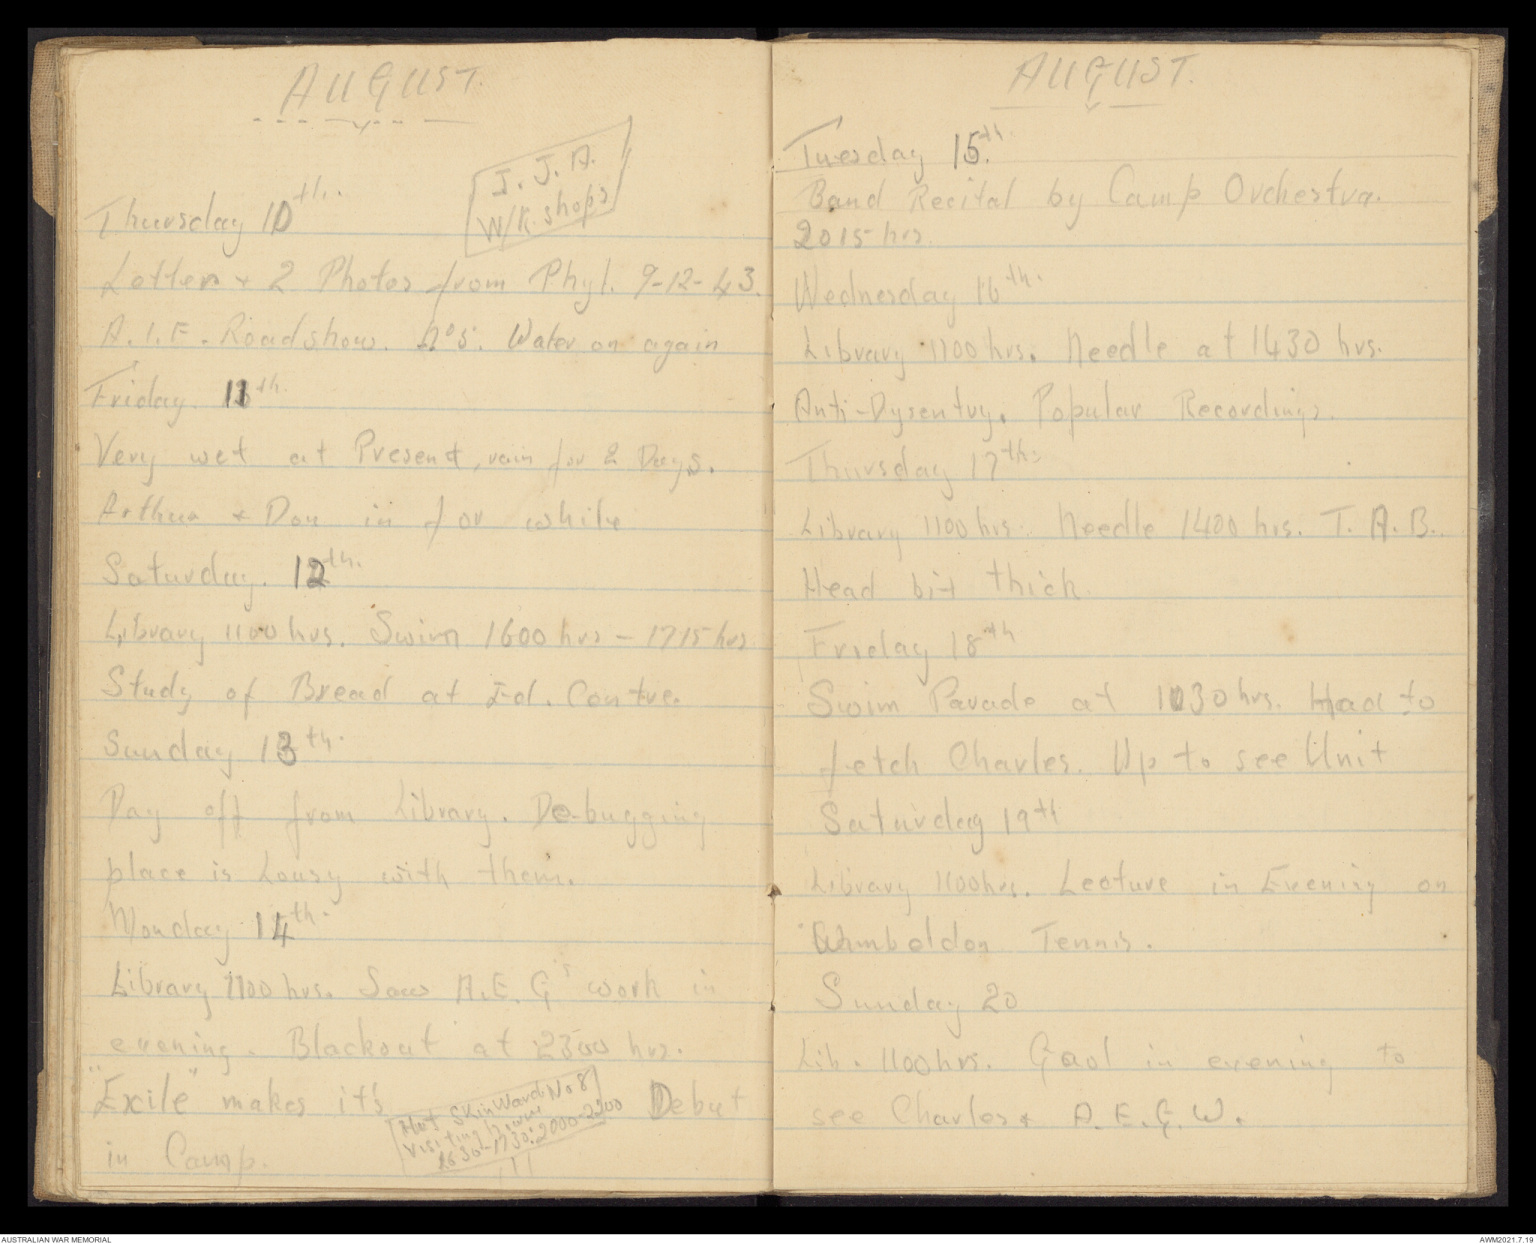 AUGUST.
I. J. A.
W/K shops
Thursday 10th.
Letter + 2 Photos from Phyl. 9-12-43.
A.I.F. Roadshow. Water on again
Friday. 11th.
Very wet at Present, rain for 2 Days.
Arthur + Don in for while
Saturday. 12th.
Library 1100 hrs. Swim 1600 hrs – 1715 hrs
Study of Bread at Ed. Centre.
Sunday 13th.
Day off from Library. De-bugging
place is Lousy with them.
Monday 14th.
Library 1100 hrs. Saw A.E.G's work in
evening. Blackout at 2300 hrs.
"Exile" makes it's Debut
in Camp.
Hut Skin Ward No 8
Visiting hours
1630-1730: 2000-2200
AUGUST.
Tuesday 15th.
Band Recital by Camp Orchestra.
2015 hrs.
Wednesday 16th.
Library 1100 hrs. Needle at 1430 hrs.
Anti-Dysentry. Popular Recordings.
Thursday 17th.
Library 1100 hrs. Needle 1400 hrs. T.A.B.
Head bit thick.
Friday 18th
Swim Parade at 1030 hrs. Had to
fetch Charles. Up to see Unit
Saturday 19th
Library 1100 hrs. Lecture in Evening on
Wimbeldon Tennis.
Sunday 20
Lib. 1100 hrs. Gaol in evening to
see Charles + A.E.G.W.
AUSTRALIAN WAR MEMORIAL
AWM2021.7.19